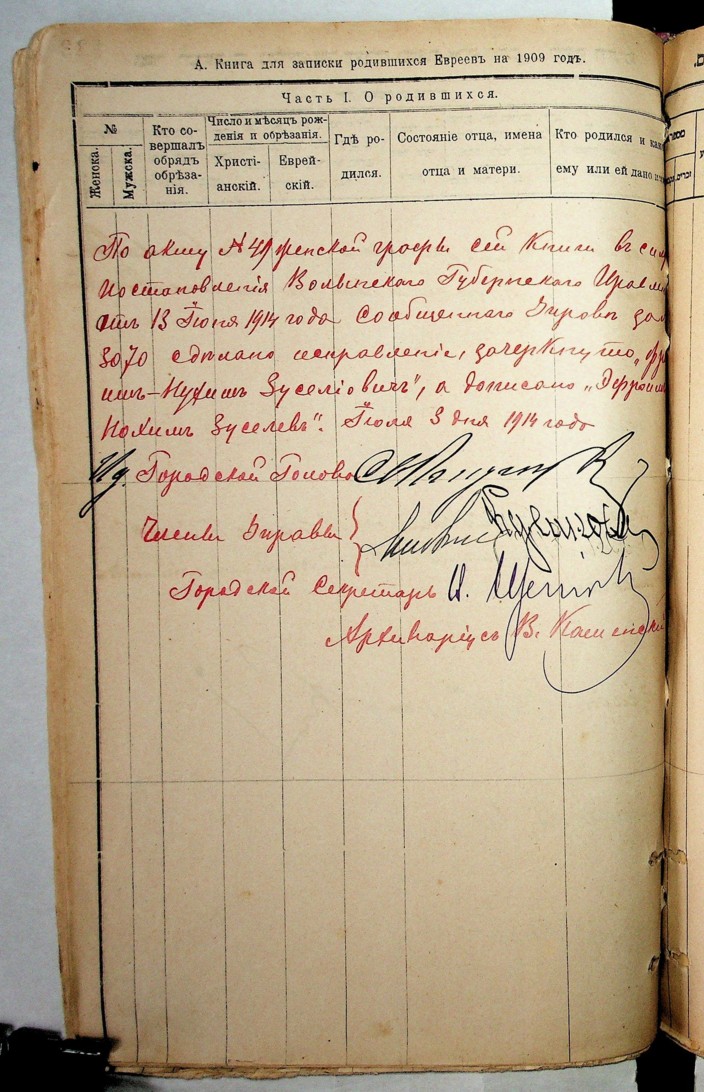 А. Книга для записки родившихся Евреевъ на 1909 годъ.
Часть I. О родившихся.
№
Женска.
Мужска.
Кто со-
вершалъ
обрядъ
обрѣза-
нія.
Число и мѣсяцъ рож-
денія и обрѣзанія.
Христі-
анскій.
Еврей-
скій.
Гдѣ ро-
дился.
Состояніе отца, имена
отца и матери.
Кто родился и
ему или ей дано
По акту № 49 женской графы сей книги въ
постановленія Волынскаго Губернскаго
отъ 13 Іюня 1914 года сообщеннаго
3070 сдѣлано исправленіе, зачеркнуто
имъ-Нухимъ Зуселіовичъ", а дописано „Эфроимъ
Нохимъ Зуселевъ". Іюля 3 дня 1914 года
Ид. Городской Голова
Члены Управы
Городской Секретарь
Архиваріусъ В.